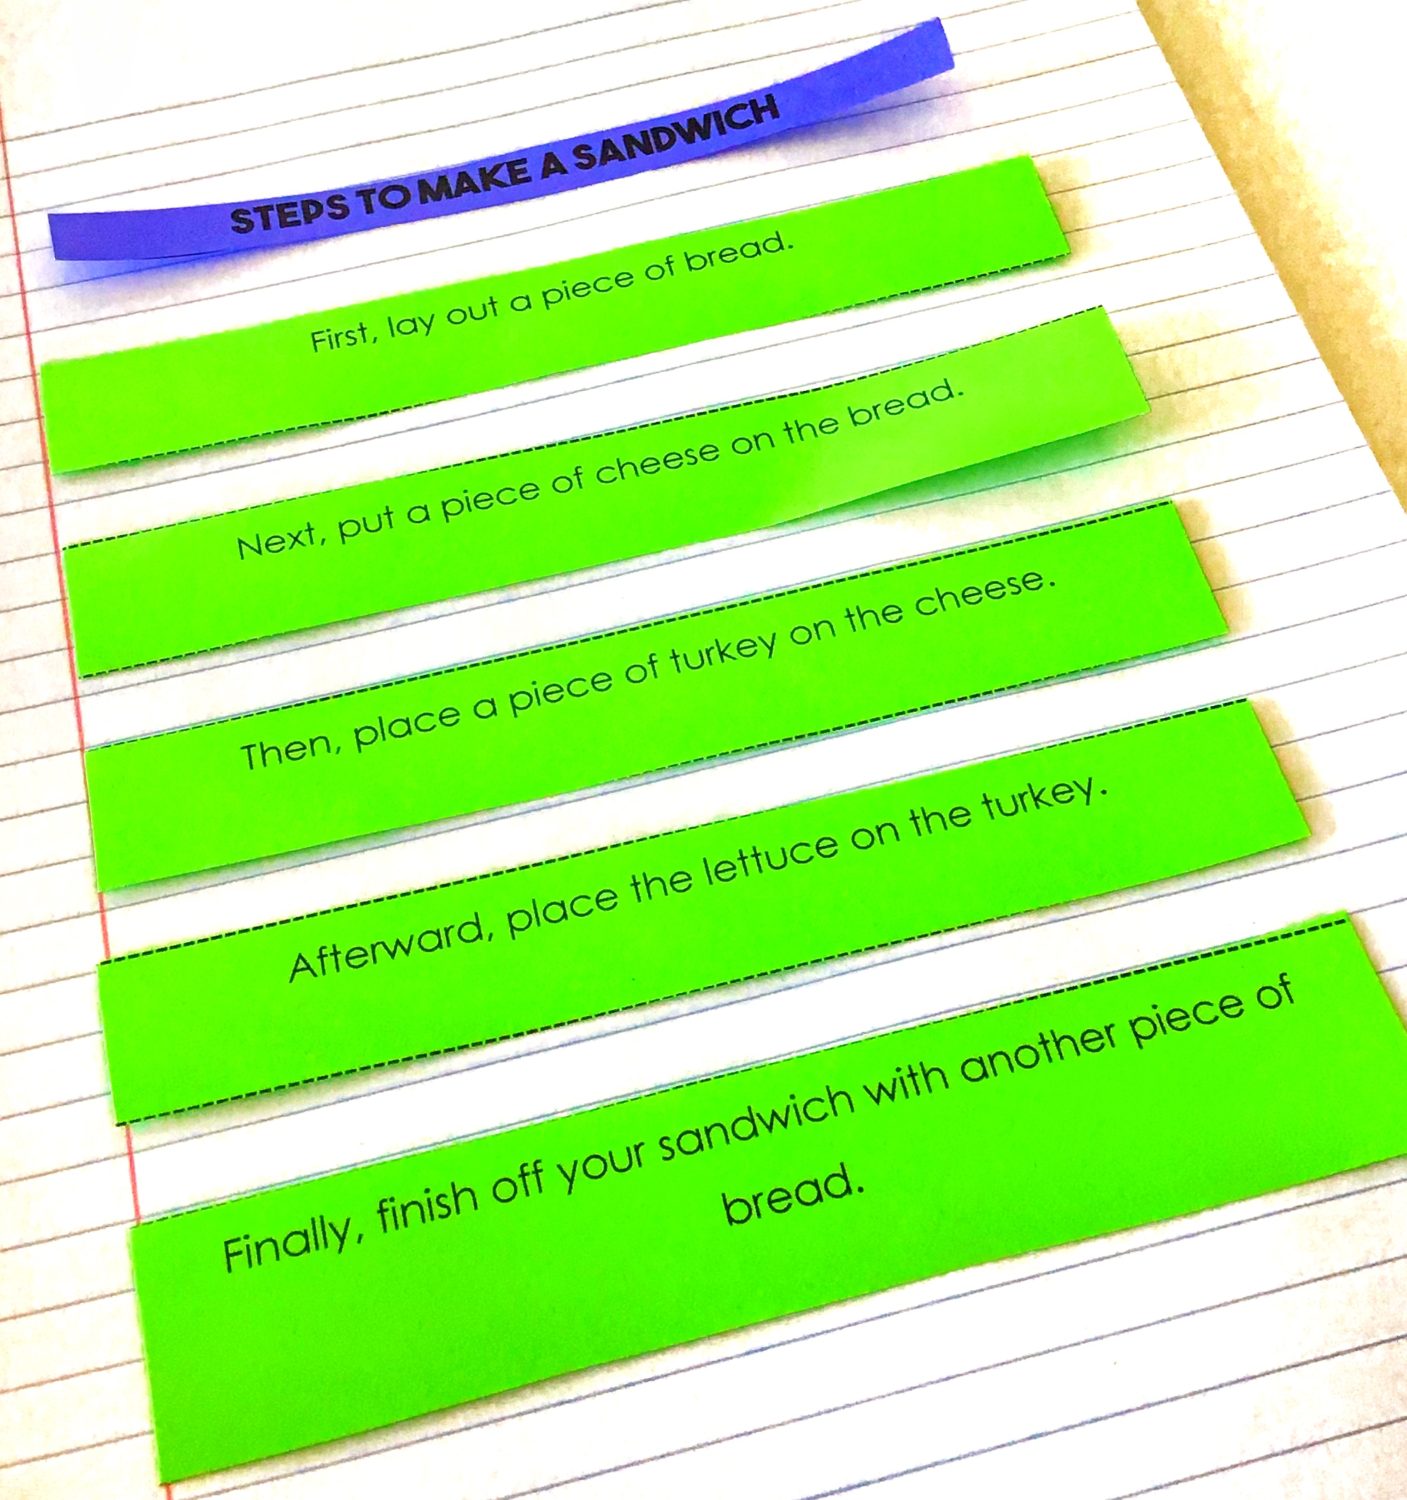 STEPS TO MAKE A SANDWICH
First, lay out a piece of bread.
Next, put a piece of cheese on the bread.
Then, place a piece of turkey on the cheese.
Afterward, place the lettuce on the turkey.
Finally, finish off your sandwich with another piece of
bread.